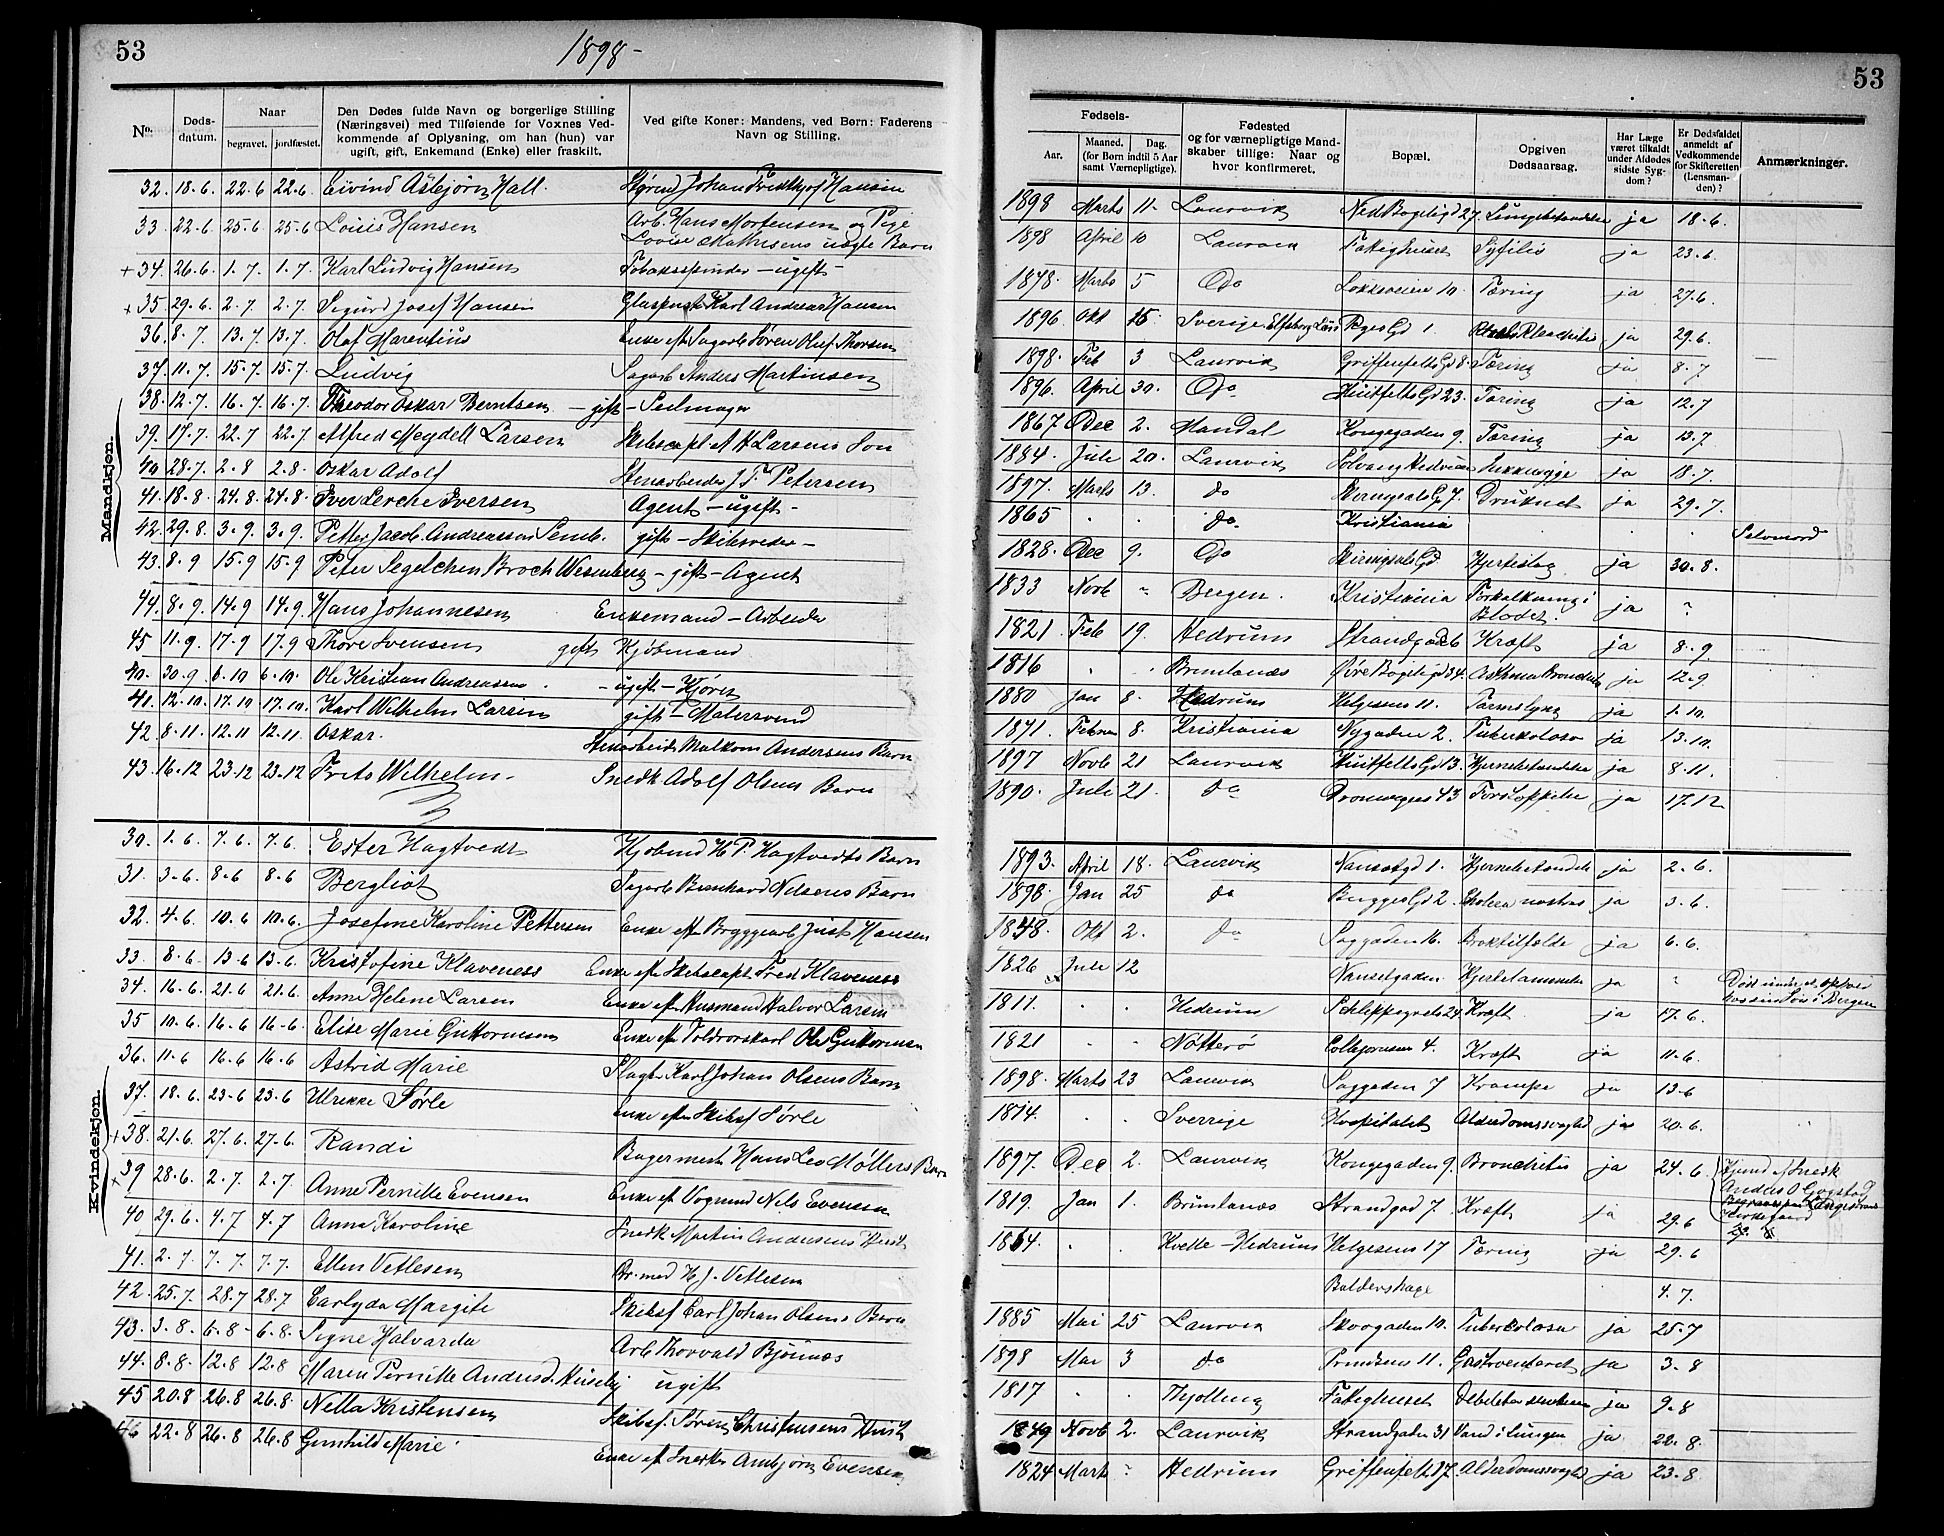 53
1898 -
No.
Døds-
datum.
Naar
begravet.
jordfæstet.
Den Dødes fulde Navn og borgerlige Stilling
(Næringsvei) med Tilføiende for Voxnes Ved-
kommende af Oplysning, om han (hun) var
ugift, gift, Enkemand (Enke) eller fraskilt.
Ved gifte Koner: Mandens, ved Børn: Faderens
Navn og Stilling.
Mandkjøn.
32. 18.6. 22.6 22.6. Eivind Asbjørn Hall. Johan Fridthjof Hansen
33. 22.6. 25.6 25.6 Louis Hansen Arb. Hans Mortensen og Pige
Lovise Mathisens uægte Barn
+34. 26.6. 1.7. 1.7. Karl Ludvig Hansen Tobaksspinder - ugift -
+35 29.6. 2.7 2.7. Sigurd Josef Hansen Glaspust Karl Andreas Hansen
36. 8.7. 13.7. 13.7. Olaf Marentius Enke eft Sagarb Søren Oluf Thorsen
37. 11.7. 15.7. 15.7. Ludvig Sagarb Anders Martinsen
38. 12.7. 16.7. 16.7. Theodor Oskar Berntsen - gift - Seilmager
39. 17.7. 22.7 22.7. Alfred Meydell Larsen Skibscapt. A H Larsens Søn
40 28.7. 2.8 2.8. Oskar Adolf Stenarbeider J. F. Petersen
41. 18.8 24.8. 24.8. Iver Lerche Iversen Agent - ugift -
42. 29.8. 3.9. 3.9. Petter Jacob Andreassen Semb. gift - Skibsreder -
43. 8.9 15.9 15.9 Peter Segelchen Broch Wesenberg - gift - Agent
44. 8.9. 14.9 14.9. Hans Johannesen Enkemand - Arbeider
45 11.9. 17.9 17.9 Thore Svensen gift Kjøbmand
40. 30.9 6.10 6.10. Ole Kristian Andreassen - ugift - Kjører
41. 12.10. 17.10 17.10. Karl Wilhelm Larsen gift - Malersvend
42. 8.11. 12.11 12.11. Oskar. Stenarbeid Malkom Andersens Barn
43. 16.12 23.12 23.12 Frits Wilhelm. Snedk Adolf Olsens Barn
Kvindekjøn.
30. 1.6. 7.6. 7.6. Ester Hagtvedt Kjøbmd H. P. Hagtvedts Barn
31. 3.6. 8.6 8.6 Bergliot Sagarb Bernhard Nilsens Barn
32. 4.6. 10.6 10.6. Josefine Karoline Pettersen Enke eft Bryggearb Just Hansen
33. 8.6. 13.6 13.6. Kristofine Klaveness Enke eft Skibscapt. Fred Klaveness
34. 16.6. 21.6 21.6. Anne Helene Larsen Enke eft Husmand Halvor Larsen
35 10.6. 16.6 16.6. Elise Marie Guttormsen Enke eft Toldrorskarl Ole Guttormsen
36. 11.6 16.6 16.6. Astrid Marie Slagt. Karl Johan Olsens Barn
37. 18.6. 23.6 23.6 Ulrikke Sørle Enke efter Skibsf Sørle
+38. 21.6. 27.6. 27.6. Randi Bagermest Hans Leo Møllers Barn
+39 28.6. 2.7. 2.7 Anne Pernille Evensen Enke eft Vognmd Nils Evensen
40 29.6. 4.7 4.7 Anna Karoline Snedk Martin Andersens Hust
41. 2.7 7.7. 7.7. Ellen Vetlesen Br.med H. J. Vetlesen
42. 25.7. 28.7 28.7 Carlyda Margite Skibsf Carl Johan Olsens Barn
43. 3.8. 6.8 - 6.8. Signe Halvarda Arb Thorvald Bjønnes
44. 8.8. 12.8 12.8 Maren Pernille Andersd. Huseby ugift
45 20.8 26.8 26.8. Nella Kristensen Skibsf. Søren Christensens Hust
46 22.8 26.8 26.8 Gunhild Marie Enke eft Snedker Ambjørn Evensen
53
Fødsels-
Aar.
Maaned.
Dag.
(for Børn indtil 5 Aar
samt Værnepligtige).
Fødested
og for værnepligtige Mand-
skaber tillige: Naar og
hvor konfirmeret.
Bopæl.
Opgiven
Dødsaarsag.
Har Læge
været tilkaldt
under Afdødes
sidste Syg-
dom?
Er Dødsfaldet
anmeldt af
Vedkommende
for Skifteretten
(Lensman-
den)?
Anmærkninger.
1898 Marts 11. Laurvik Ned Bøgeligd 27. Lungebetændelse ja 18.6.
1898 April 10 Laurvik Fattighuset Syfilis ja 23.6.
1848. Marts 5 Do 10. Tæring ja 27.6.
1896. Okt 15. Sverige. Elfsborg Län Pæges Gd 1. ja 29.6.
1898. Feb 3 Laurvik Griffenfelts Gd 8. Tæring ja 8.7
1896. April 30. Do Huitfelts Gd 23. Tæring ja 12.7
1867 Dec 2. Mandal Kongegaden 9. Tæring ja 13.7
1884. Jule 20. Laurvik Solvang Hedrum ja 18.7.
1897. Marts 13. do Skiringsals Gd 7. Druknet ja 29.7.
1865 . . do Kristiania . . Selvmord
1828. Dec 9. Do Skiringsals Gd Hjerteslag ja 30.8.
1833 Novb " Bergen. Kristiania Forkalkning i
Blodet. ja ?
1821. Feb 19. Hedrum Strandgade 6 Kræft ja 8.9.
1816 . . Brunlanæs Øvre Bøgeligd 34. Asthma Bronchit ja 12.9.
1880 Jan 8. Hedrum Helgesens 11. Tarmslyng ja 1.10.
1871. Februar 8. Kristiania Nygaden 2. Tuberkolose ja 13.10.
1897 Novb 21 Laurvik Huitfelts Gd 13. Hjernebetændelse ja 8.11.
1890. Jule 21. do Dronningens 43 Forstoppelse ja 17.12
1893. April 18. Laurvik Nansetgd 1. Hjernebetændelse ja 2.6.
1898. Jan 25 do Bugges Gd 2. Cholera nostras ja 3.6.
1848. Okt 2. do Saggaden 16. Broktilfælde ja 6.6.
1826 Jule 12 Nansetgaden. Hjertelammelse ja " Død under et ophold
hos sin Søn i Bergen
1811. . . Hedrum Schleppegrels 24. Kræft ja 17.6.
1821 . . Nøtterø Collejordsen 4. Kræft ja 11.6.
1898. Marts 23 Laurvik Saggaden 7 Krampe ja 13.6
1814. . . Sverrige Hospitalet Alderdomssvaghed ja 20.6.
1897. Dec 2. Laurvik Kongegaden 9. Bronchitis ja 24.6.
1819. Jan 1. Brunlanæs Strandgad 7. Kræft ja 29.6
Anders O Gogstad
Langestrand
Kirkegaard
1864. . . Kvelle - Hedrum Helgesens 17 Tæring ja 29.6
Baldershage . 4.7.
1885 Mai 25 Laurvik Skovgaden 10. Tuberkolose ja 25.7
1898 Mai 3 do Prindsens 11. Gastroenterit ja 3.8
1817 . . Thjølling Fattighuset ja 9.8
1849 Novb 2. Laurvik Strandgaden 31 Vand i Lungen ja 22.8.
1824 Marts ? Hedrum Griffenfelts 17. Alderdomssvaghed ja 23.8